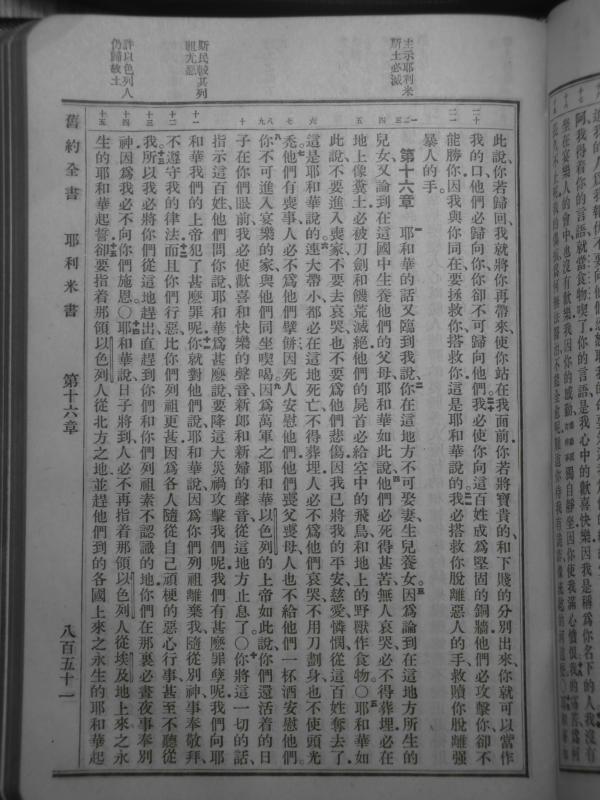 阿我得着你的言語就當食物喫了你的言語是我心中的歡喜快樂因我是稱爲你名下的人我沒有
坐在宴樂人的會中也沒有歡樂我因你的感動獨自靜坐因你使我滿心憤恨我的
主示耶利米
斯土必滅
斯民較其列
祖尤惡
許以色列人
仍歸故土
此說、你若歸回、我就將你再帶來、使你站在我面前、你若將寶貴的和下賤的分別出來、你就可以當作
二十 我的口、他們必歸向你、你卻不可歸向他們。二十我必使你向這百姓成爲堅固的銅牆、他們必攻擊你、卻不
二一 能勝你、因我與你同在、要拯救你、搭救你、這是耶和華說的。二一我必搭救你脫離惡人的手、救贖你脫離强
暴人的手。
一二三 第十六章 一耶和華的話又臨到我說、二你在這地方不可娶妻、生兒養女。三因爲論到在這地方所生的
四 兒女、又論到在這國中生養他們的父母、耶和華如此說、四他們必死得甚苦、無人哀哭、必不得葬埋、必在
五 地上像糞土、必被刀劍和饑荒滅絕、他們的屍首必給空中的飛鳥、和地上的野獸作食物。〇五耶和華如
此說、不要進入喪家、不要去哀哭、也不要爲他們悲傷、因我已將我的平安、慈愛、憐憫、從這百姓奪去了、
六 這是耶和華說的。六連大帶小、都必在這地死亡、不得葬埋、人必不爲他們哀哭、不用刀劃身、也不使頭光
七 禿。七他們有喪事、人必不爲他們擘餅、因死人安慰他們、他們喪父喪母、人也不給他們一杯酒安慰他們。
八九 八你不可進入宴樂的家、與他們同坐喫喝。九因爲萬軍之耶和華以色列的上帝如此說、你們還活着的日
十 子、在你們眼前、我必使歡喜和快樂的聲音、新郎和新婦的聲音、從這地方止息了。〇十你將這一切的話
指示這百姓、他們問你說、耶和華爲甚麽說、要降這大災禍攻擊我們呢、我們有甚麽罪孽呢、我們向耶
十一 和華我們的上帝犯了甚麽罪呢。十一你就對他們說、耶和華說、因爲你們列祖離棄我、隨從別神、事奉敬拜、
十二 不遵守我的律法。十二而且你們行惡、比你們列祖更甚、因爲各人隨從自己頑梗的惡心行事、甚至不聽從
十三 我。十三所以我必將你們從這地趕出、直趕到你們和你們列祖素不認識的地、你們在那裏必晝夜事奉別
十四 神、因爲我必不向你們施恩。〇十四耶和華說、日子將到、人必不再指着那領以色列人從埃及地上來之永
十五 生的耶和華起誓。十五卻要指着那領以色列人從北方之地、並趕他們到的各國上來之永生的耶和華起
舊約全書 耶利米書 第十六章 八百五十一